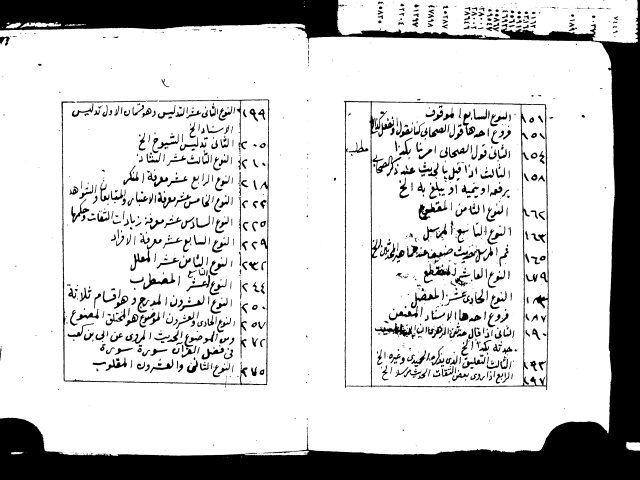 ١٥١ النوع السابع الموقوف
١٥١ فروع احدها قول الصحابى كنا نقول او نفعل كذا الخ
١٥٤ الثانى قول الصحابى امرنا بكذا
مطلب
١٥٨ الثالث اذا قيل فى الحديث عند ذكر الصحابى
يرفعه او ينميه او يبلغ به الخ
١٦٢ النوع الثامن المقطوع
١٦٣ النوع التاسع المرسل
١٦٥ ثم المرسل حديث ضعيف عند جماهير المحدثين الخ
١٧٩ النوع العاشر المنقطع
النوع الحادى عشر المعضل
١٨٧ فروع احدها الاسناد المعنعن
١٩٠ الثانى اذا قال حدثنى الزهرى ان ابن المسيب
حدثه بكذا الخ
١٩٣ الثالث التعليق الذى يذكره الحميدى وغيره الخ
١٩٧ الرابع اذا روى بعض الثقات الحديث مرسلا الخ
١٩٩ النوع الثانى عشر التدليس وهو قسمان الاول تدليس
الاسناد الخ
٢٠٥ الثانى تدليس الشيوخ الخ
٢١٠ النوع الثالث عشر الشاذ
٢١٨ النوع الرابع عشر معرفة المنكر
٢٢٢ النوع الخامس عشر معرفة الاعتبار والمتابعات والشواهد
٢٢٥ النوع السادس عشر معرفة زيادات الثقات وحكمها
٢٢٩ النوع السابع عشر معرفة الافراد
٢٣٢ النوع الثامن عشر المعلل
٢٤٤ النوع التاسع عشر المضطرب
٢٥٠ النوع العشرون المدرج وهو اقسام ثلاثة
٢٥٧ النوع الحادى والعشرون الموضوع هو المختلق المصنوع
٢٧٢ ومن الموضوع الحديث المروى عن ابى بن كعب
فى فضل القرآن سورة سورة
٢٧٥ النوع الثانى والعشرون المقلوب